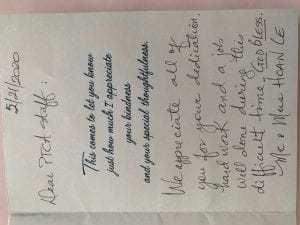 5/21/2020
Dear PTCA Staff:
This comes to let you know
just how much I appreciate
your kindness
and your special thoughtfulness.
We appreciate all of
you for your dedication,
hard work and a job
well done during this
difficult time - GOD BLESS.
Mr & Mrs HOAN LE